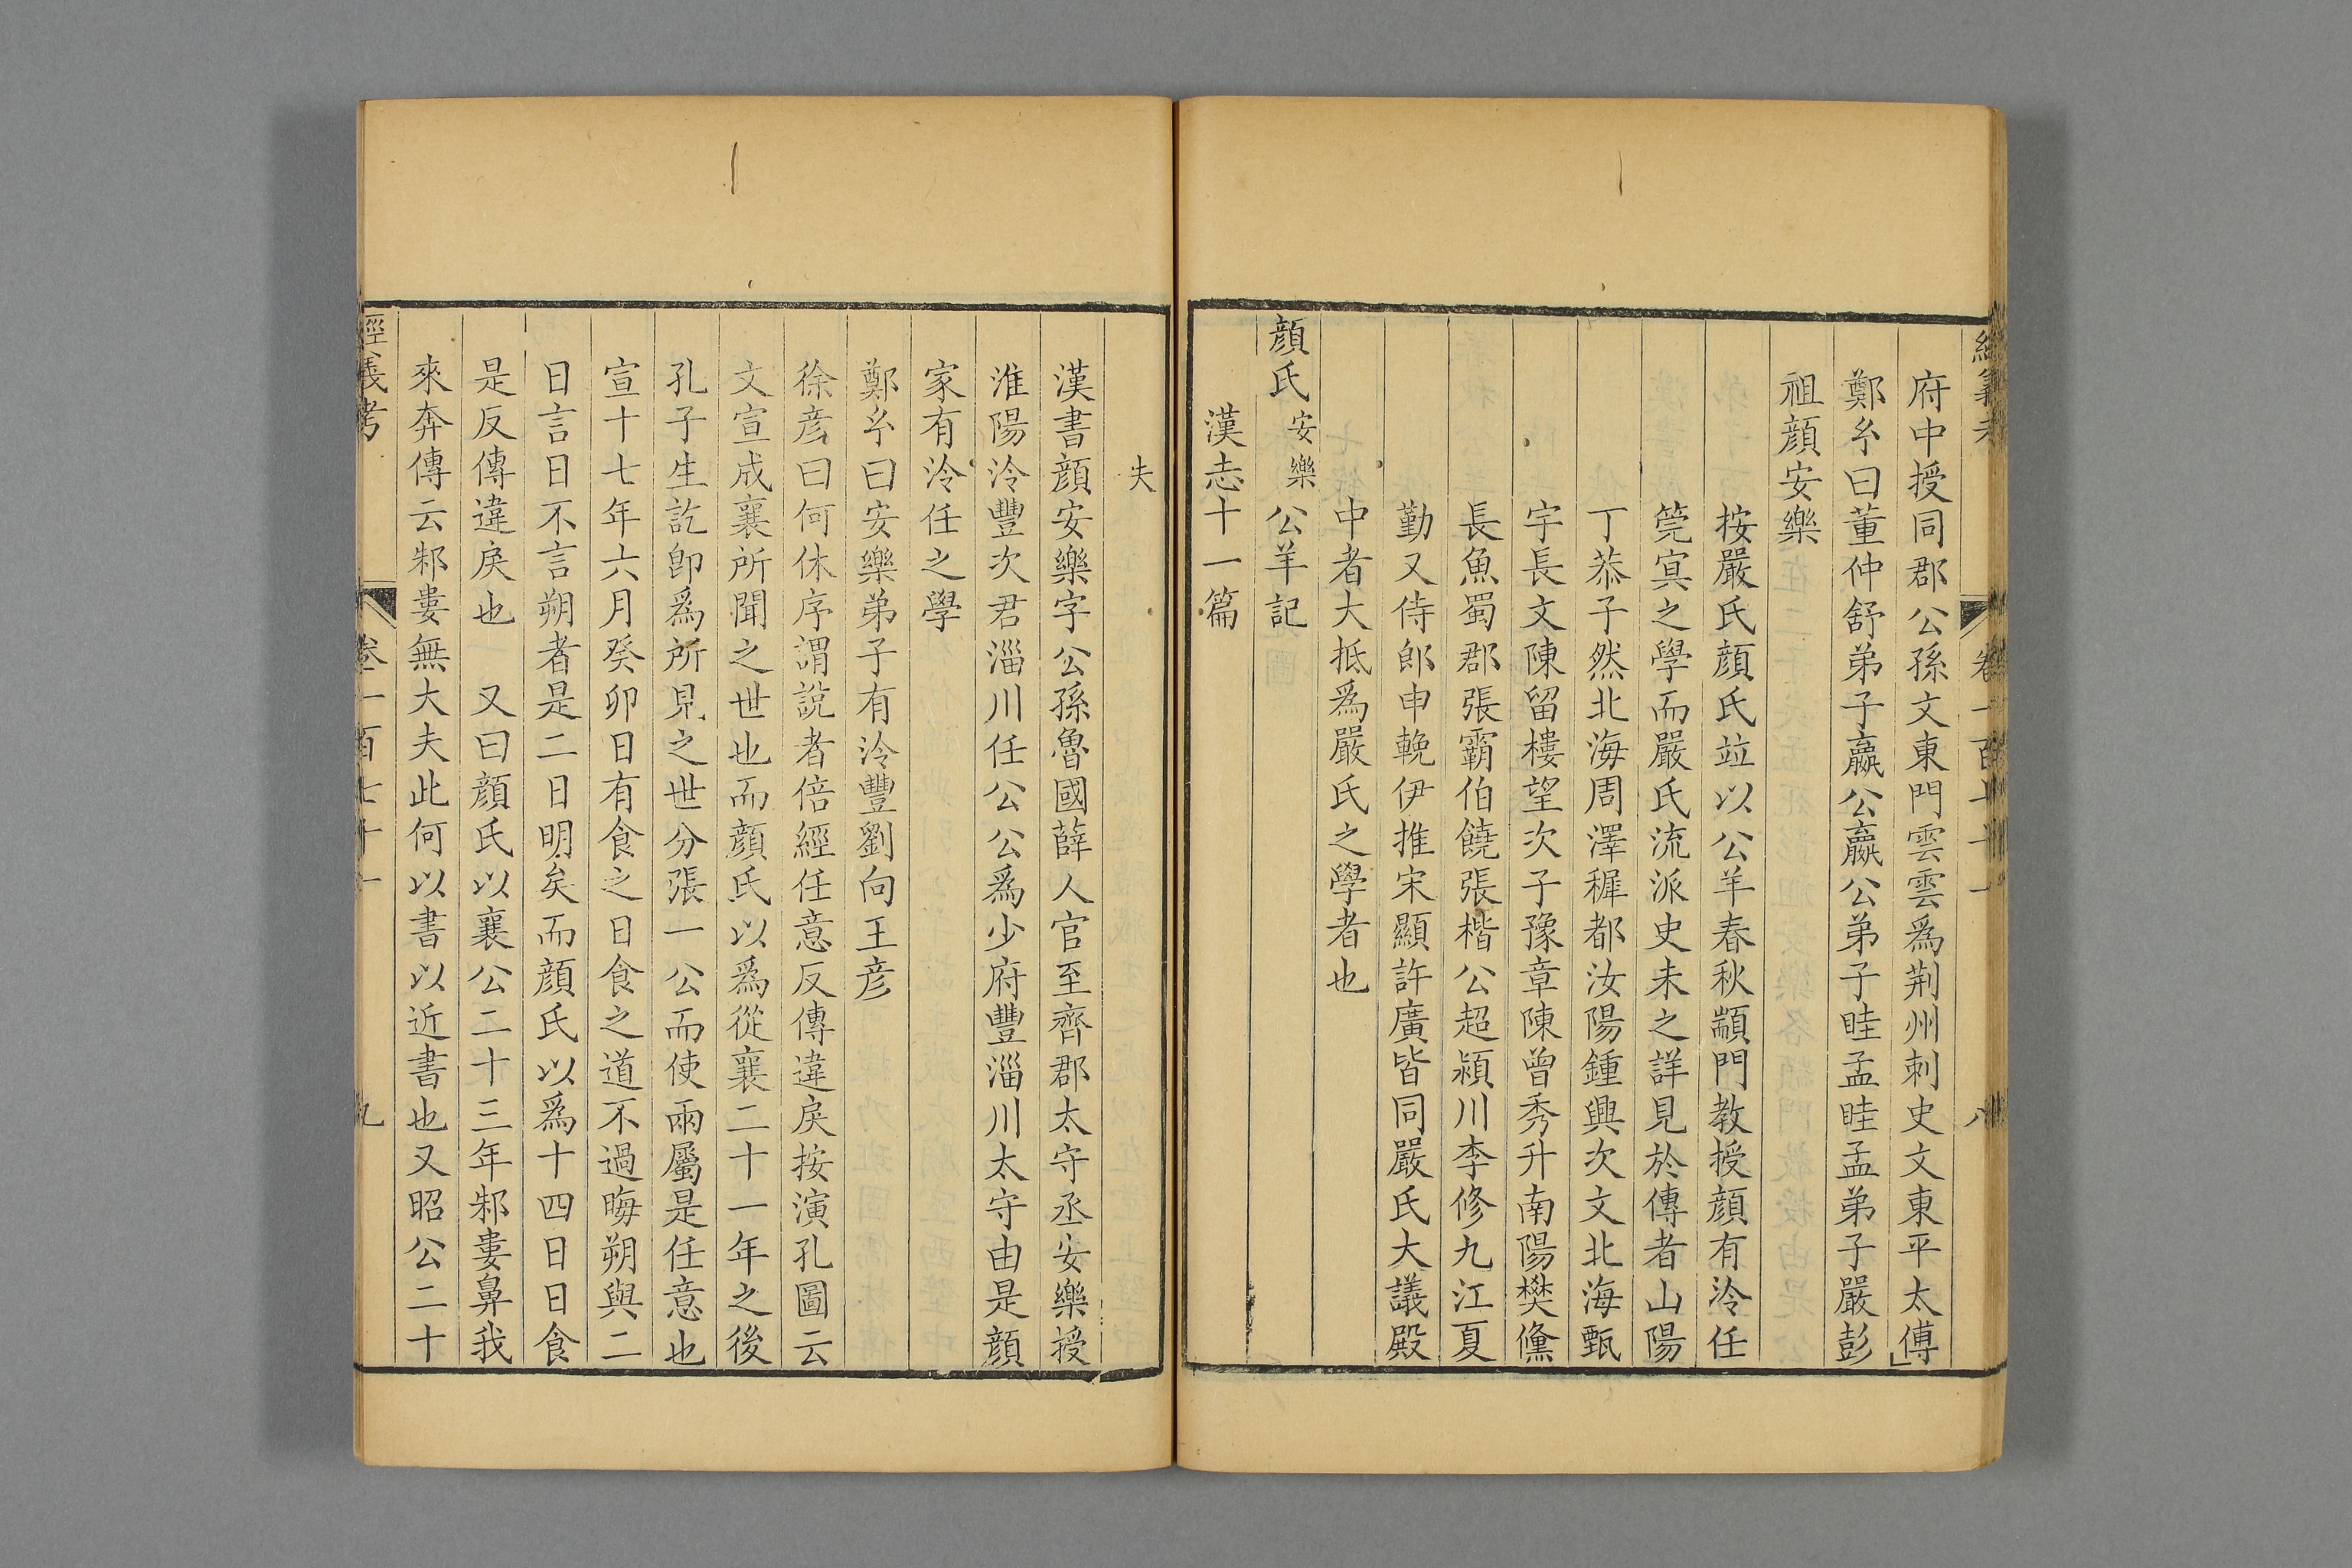 經義考 卷一百七十一 八
府中授同郡公孫文東門雲雲爲荆州刺史文東平太傅
鄭𤣥曰董仲舒弟子嬴公嬴公弟子眭孟眭孟弟子嚴彭
祖顔安樂
按嚴氏顔氏竝以公羊春秋顓門教授顔有泠任
筦㝠之學而嚴氏流派史未之詳見於傳者山陽
丁恭子然北海周澤穉都汝陽鍾興次文北海甄
宇長文陳留樓望次子豫章陳曾秀升南陽樊儵
長魚蜀郡張霸伯饒張楷公超潁川李修九江夏
勤又侍郎申輓伊推宋顯許廣皆同嚴氏大議殿
中者大抵爲嚴氏之學者也
顔氏安樂公羊記
漢志十一篇
夫
漢書顔安樂字公孫魯國薛人官至齊郡太守丞安樂授
淮陽泠豐次君淄川任公公爲少府豐淄川太守由是顔
家有泠任之學
鄭𤣥曰安樂弟子有泠豐劉向王彦
徐彦曰何休序謂說者倍經任意反傳違戾按演孔圖云
文宣成襄所聞之世也而顔氏以爲從襄二十一年之後
孔子生訖卽爲所見之世分張一公而使兩屬是任意也
宣十七年六月癸卯日有食之日食之道不過晦朔與二
日言日不言朔者是二日明矣而顔氏以爲十四日日食
是反傳違戾也 又曰顔氏以襄公二十三年邾婁鼻我
來奔傳云邾婁無大夫此何以書以近書也又昭公二十
經義考 卷一百七十一 九